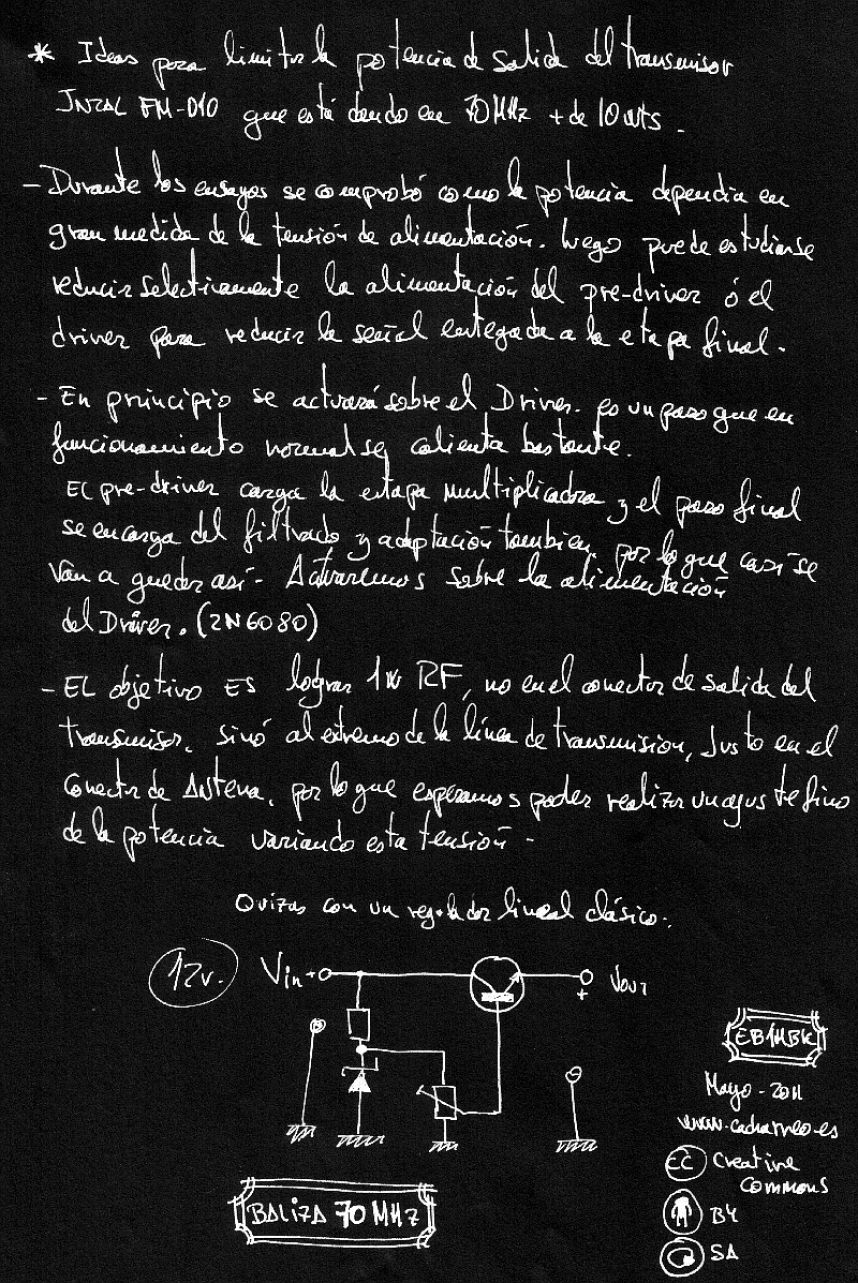 * Ideas para limitar la potencia de salida del transmisor
INZAL FM-010 que está dando en 70MHz + de 10wts.
- Durante los ensayos se comprobó como la potencia dependia en
gran medida de la tensión de alimentación. luego puede estudiarse
reducir selectivamente la alimentación del pre-driver ó el
driver para reducir la señal entegada a la etapa final.
- En principio se actuará sobre el Driver. es un paso que en
funcionamiento normal se calienta bastante.
EL pre-driver carga la etapa multiplicadora y el paso final
se encarga del filtrado y adaptación tambien, por lo que casi se
Van a quedar así - Actuaremos sobre la alimentación
del Driver. (2N6080)
- EL objetivo ES lograr 1w RF, no en el conector de salida del
transmisor, sinó al extremo de la línea de transmision, Justo en el
Conector de Antena, por lo que esperamos poder realizar un ajuste fino
de la potencia variando esta tensión -
Quizas con un regulador lineal clásico.
12v.
Vin +
+
Vout
EB1HBK
Mayo - 2011
www.cacharreo.es
CC Creative
Commons
BY
SA
BALIZA 70 MHZ